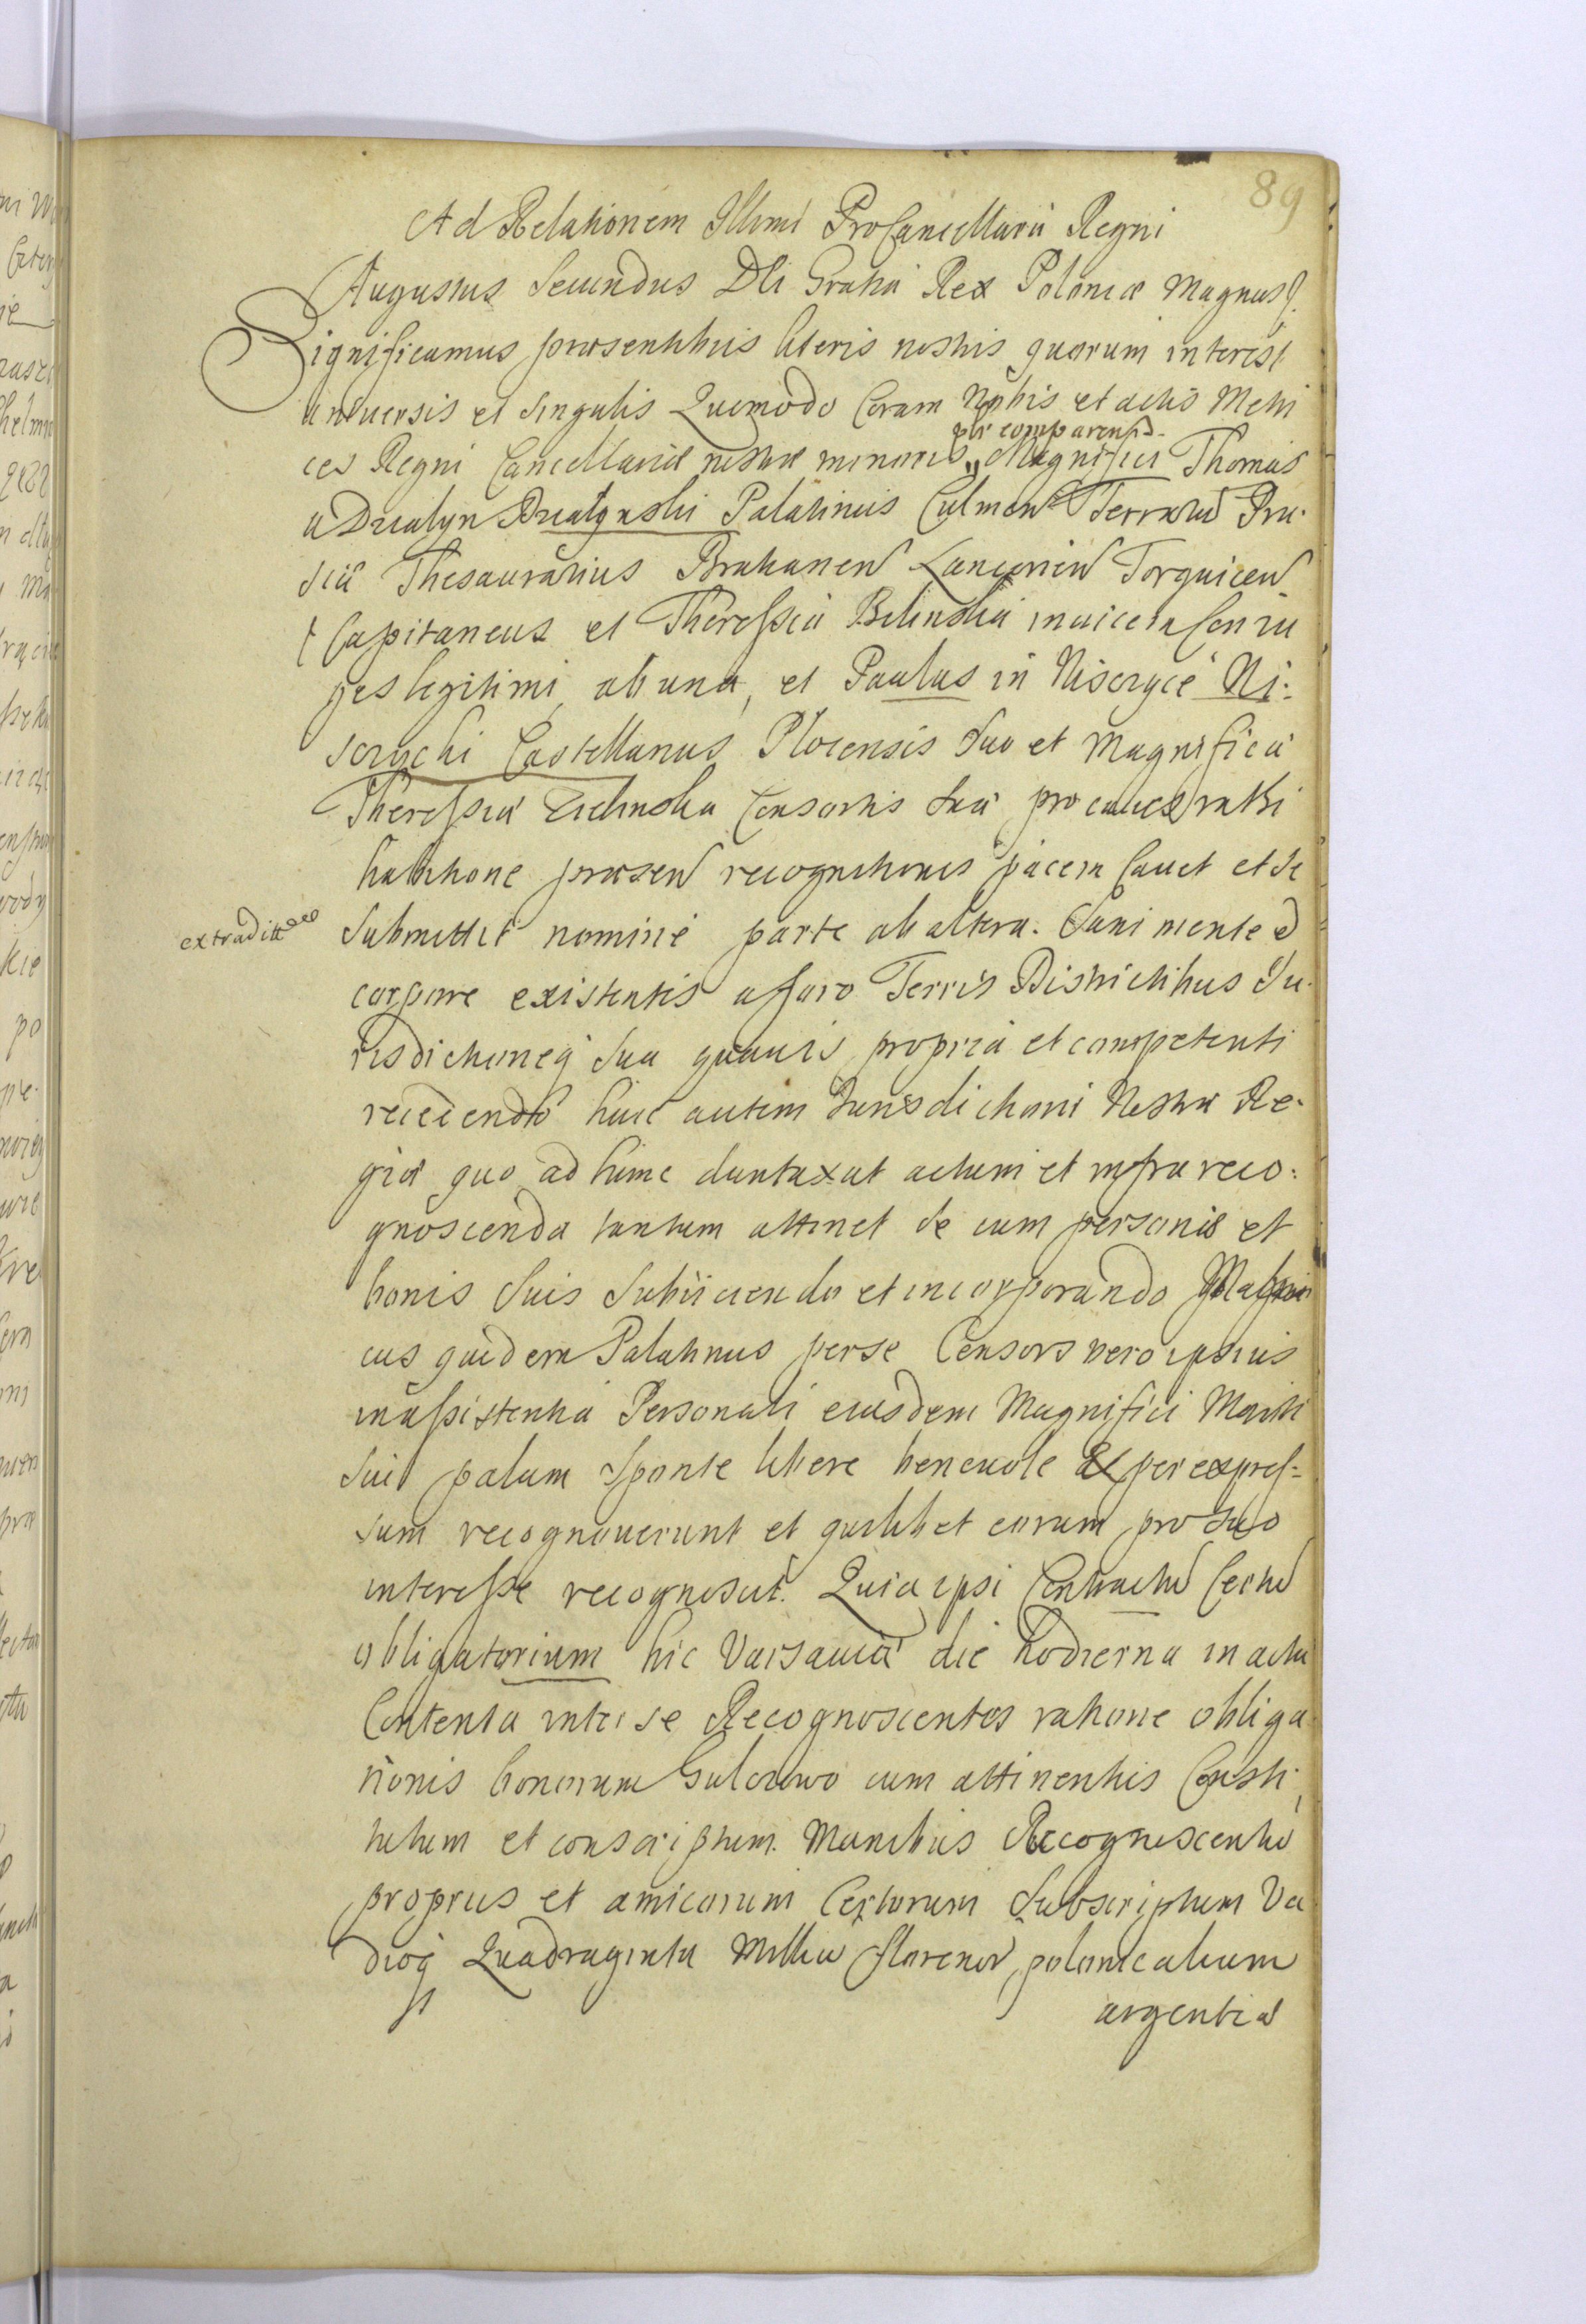 89
Ad Relationem Illmi ProCancellarii Regni
Augustus Secundus Dei Gratia Rex Poloniæ Magnusq.
Significamus præsentibus literis nostris quorum interest
universis et singulis Quomodo Coram Nobis et actis Metri
plr comparens
ces Regni Cancellariæ nostræ minoris Magnifici Thomas
a Dzialyn Dzialynski Palatinus Culmen Terraru Pru.
siæ Thesaurarius Brahanen Torquicen
Capitaneus et Theressia Bilinska inuicem Coniu
ges legitimi, ab una, et Paulus in Nisczyce Ni:
sczycki Castellanus Plocensis suo et Magnificæ
Theressiæ Zielinska Consortis suæ pro cuius rati
habitione præsen recognitionis pacem Cauet et se
extraditæ
submittit nomine parte ab altera. Sani mente &
corpore existentis a foro Terris Districtibus Iu
risdictioneq sua quauis propria et competenti
recedendo huic autem Iurisdictioni Nostræ Re-
giæ quo ad hunc duntaxat actum et infra reco:
gnoscenda tantum attinet se cum personis et
bonis suis subiiciendo et incorporando Magnifi
cus quidem Palatinus per se Consors vero ipsius
in assistentia Personali eiusdem Magnifici Mariti
sui palam sponte libere beneuole & per expres=
sum recognouerunt et quilibet eorum pro suo
interesse recognoscit. Quia ipsi Contractu Certu
obligatorium hic Varsauiæ die hodierna in actu
Contenta inter se Recognoscentes ratione obliga
tionis bonorum cum attinentiis Consti
tutum et conscriptum. Manibus Recognoscentiu
propriis et amicorum Certorum Subscriptum Va
dioq Quadraginta Millia florenor polonicalium
argentea